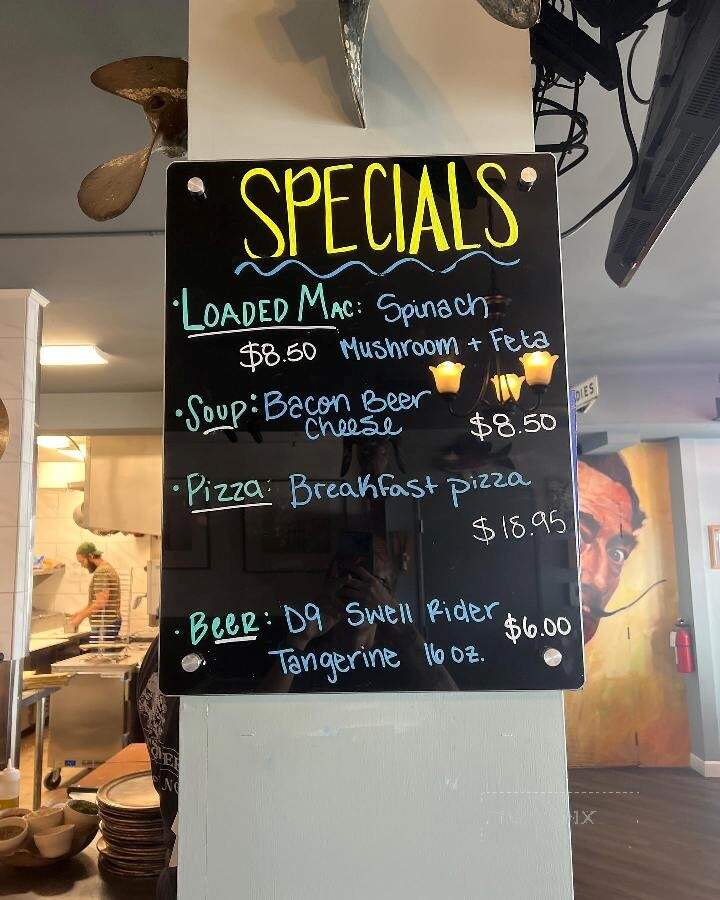 SPECIALS
• LOADED MAC: Spinach
$8.50 Mushroom + Feta
• Soup: Bacon Beer
Cheese $8.50
• Pizza: Breakfast pizza
$18.95
• Beer: D9 Swell Rider $6.00
Tangerine 16 oz.